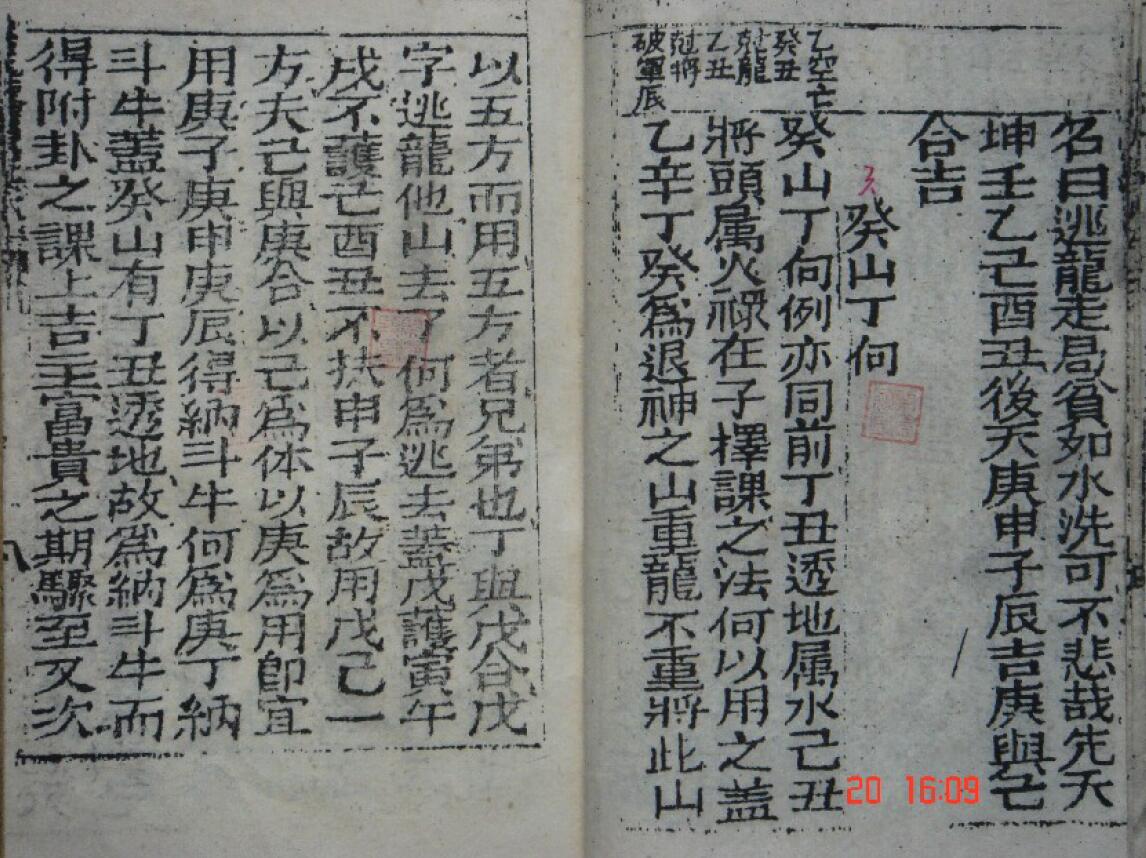 名曰逃龍走局貧如水洗可不悲哉先天
坤壬乙己酉丑後天庚申子辰吉庚與己
合吉
癸山丁向
癸山丁向例亦同前丁丑透地属水己丑
將頭属火祿在子擇課之法何以用之盖
乙辛丁癸為退神之山重龍不重將此山
乙空亡
癸丑
尅龍
乙丑
尅將
破軍辰
以五方而用五方者兄弟也丁與戊合戊
字逃龍他山去了何為逃去蓋戊護寅午
戌不護己酉丑不扶申子辰故用戊己一
方夫己與庚合以己為体以庚為用即宜
用庚子庚申庚辰得納斗牛何為庚丁納
斗牛蓋癸山有丁丑透地故為納斗牛而
得附卦之課上吉主富貴之期驟至又次
八
20 16:09